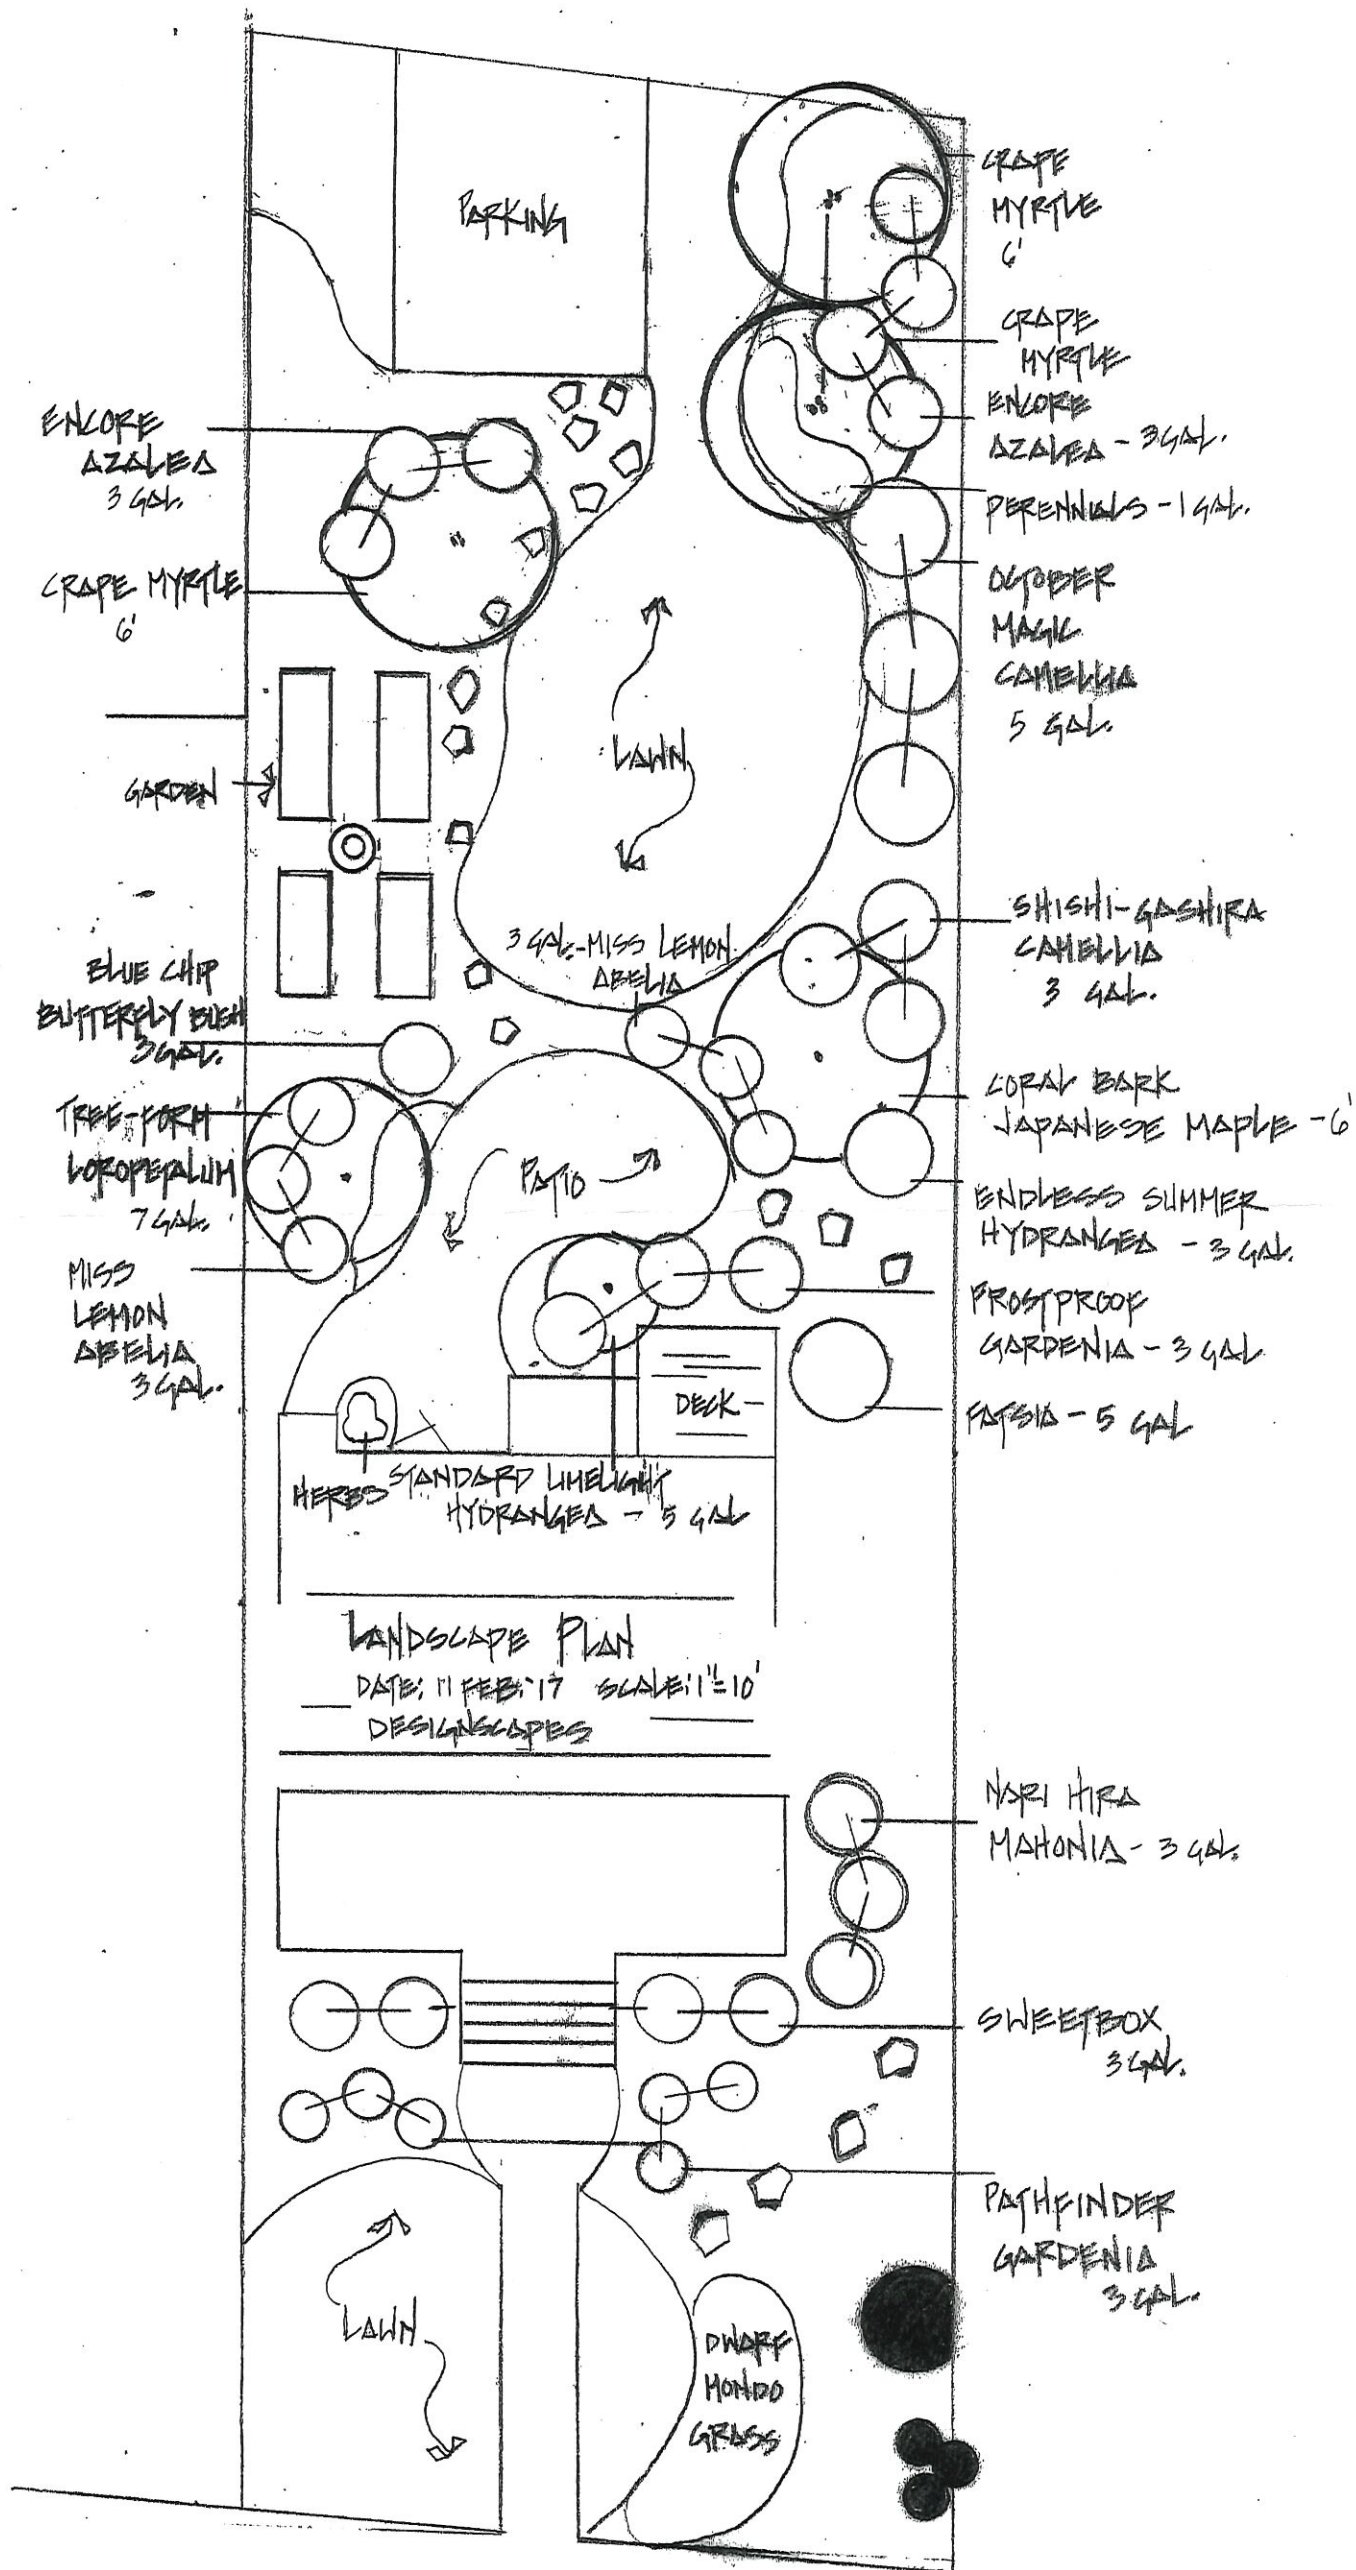 PARKING
CRAPE
MYRTLE
6'
CRAPE
MYRTLE
ENCORE
AZALEA - 3 GAL.
PERENNIALS - 1 GAL.
OCTOBER
MAGIC
CAMELLIA
5 GAL.
ENCORE
AZALEA
3 GAL.
CRAPE MYRTLE
6'
LAWN
GARDEN
3 GAL.-MISS LEMON
ABELIA
SHISHI-GASHIRA
CAMELLIA
3 GAL.
BLUE CHIP
BUTTERFLY BUSH
3 GAL.
CORAL BARK
JAPANESE MAPLE - 6'
TREE-FORM
LOROPETALUM
7 GAL.
PATIO
ENDLESS SUMMER
HYDRANGEA - 3 GAL.
MISS
LEMON
ABELIA
3 GAL.
FROSTPROOF
GARDENIA - 3 GAL
DECK
FATSIA - 5 GAL
HERBS
STANDARD LIMELIGHT
HYDRANGEA - 5 GAL
LANDSCAPE PLAN
DATE: 11 FEB. '17 SCALE: 1"=10'
DESIGNSCAPES
NARI HIRA
MAHONIA - 3 GAL.
SWEETBOX
3 GAL.
PATHFINDER
GARDENIA
3 GAL.
LAWN
DWARF
MONDO
GRASS